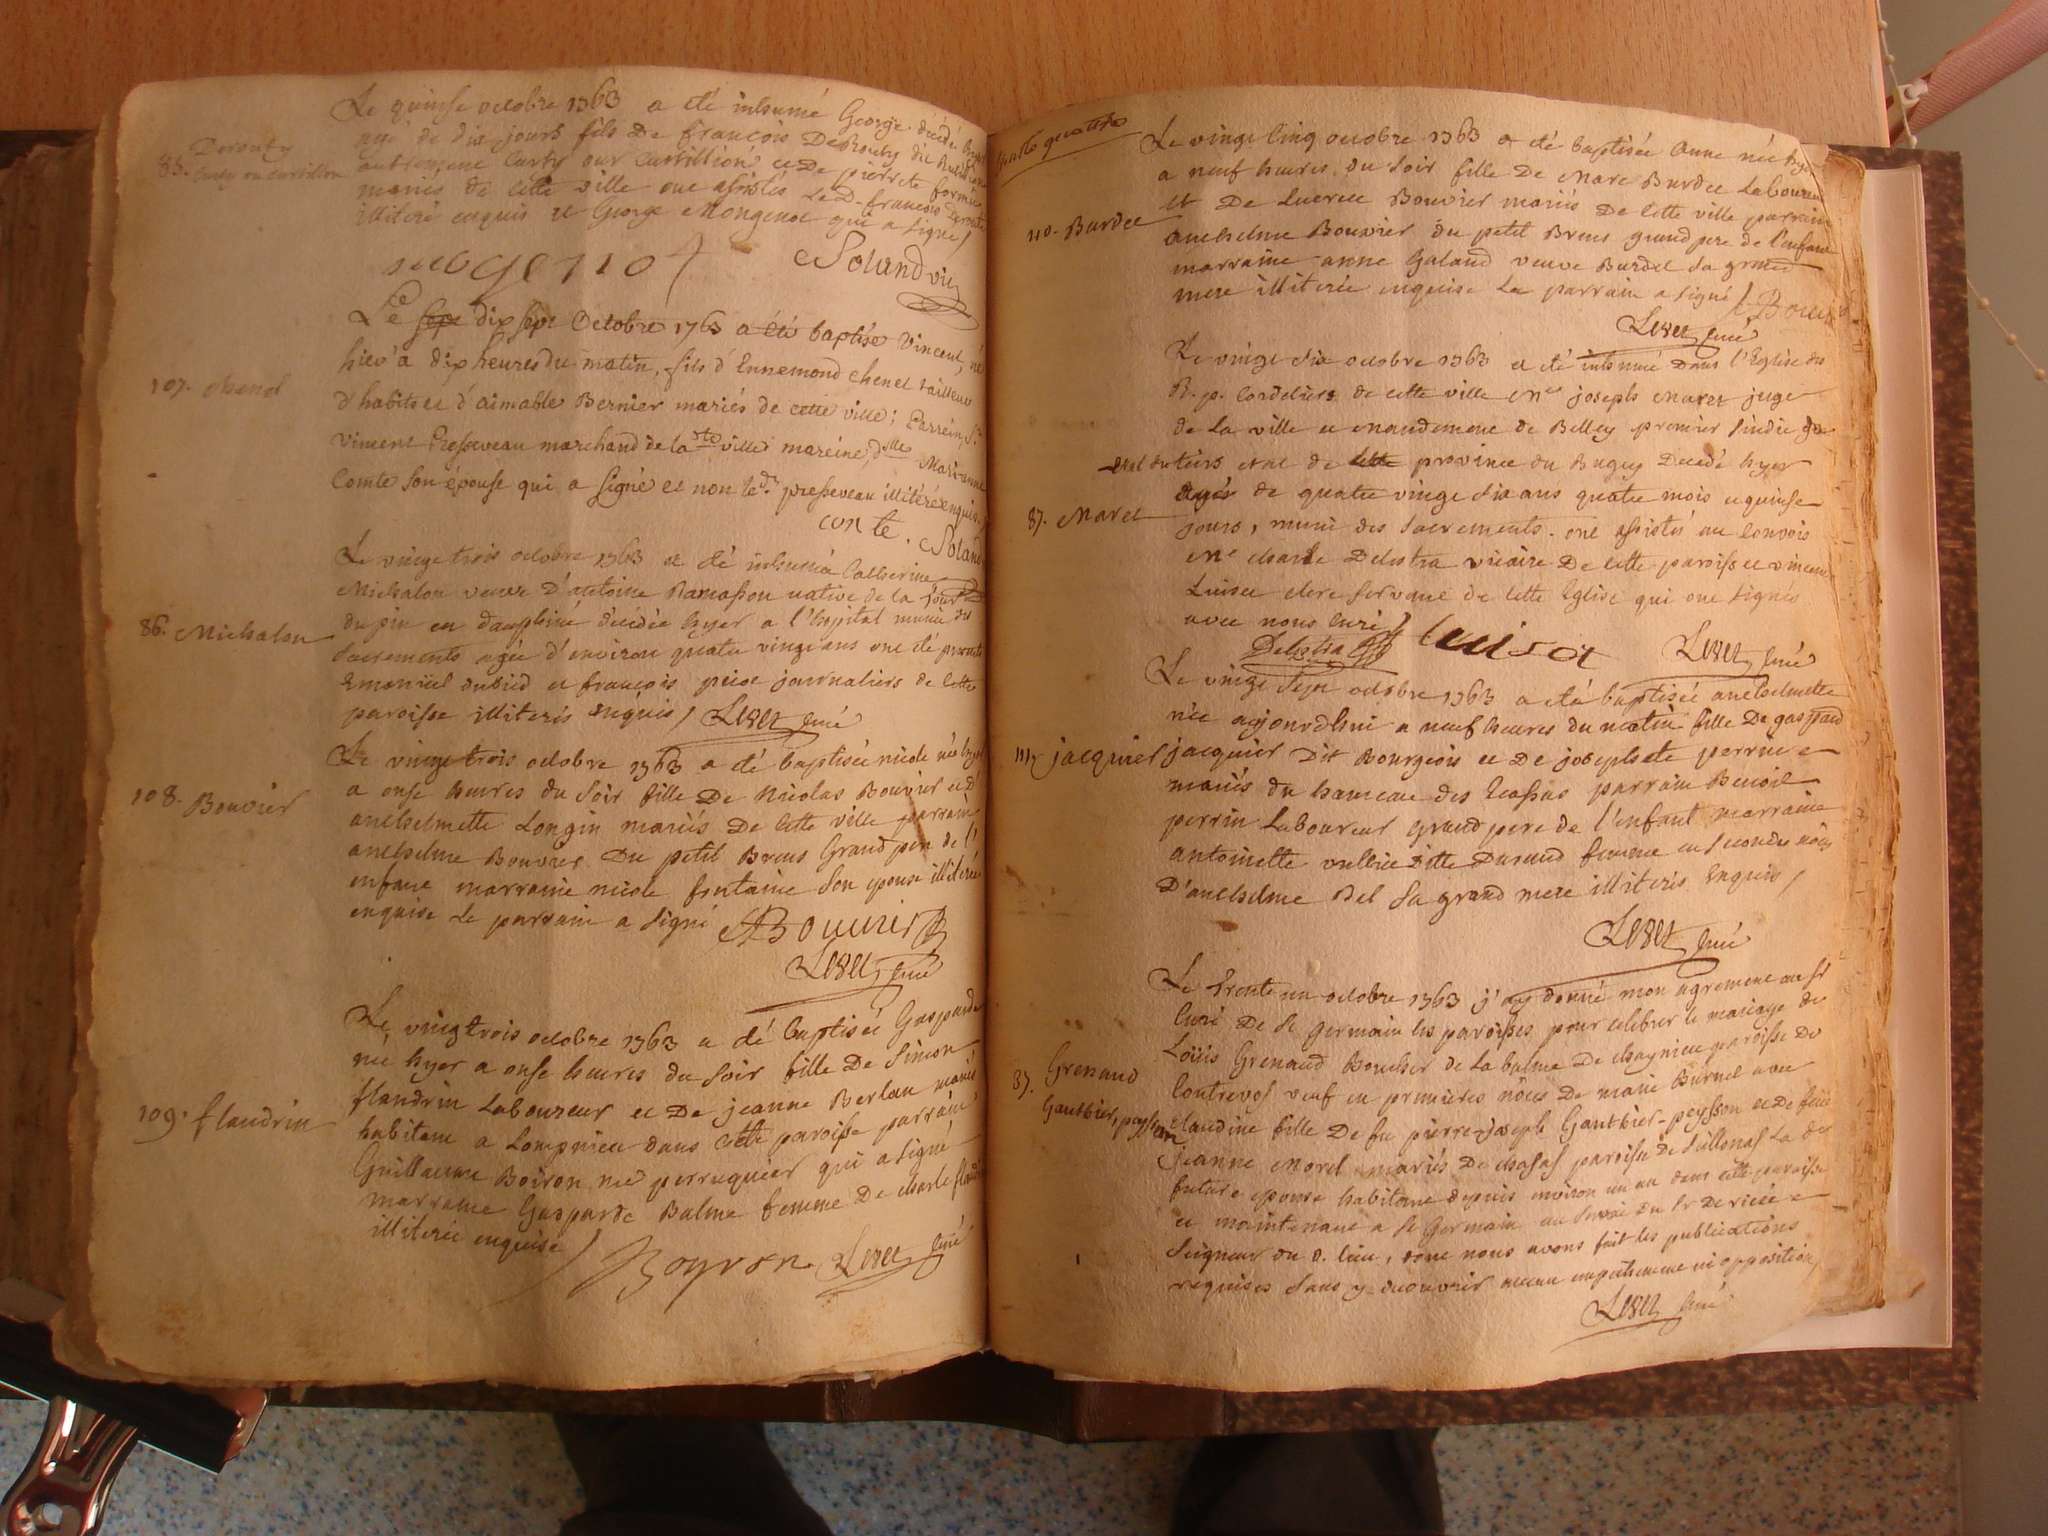 Le quinse octobre 1763 a été inhumé George décédé
agé de dix jours fils De françois Derouty dit
85. Derouty
Curty ou Curtillion
autrement Curty our Curtillion et De pierrete
mariés de cette ville ont assistés Le D. françois
illiteré enquis et George Mongenot qui a signé /
mogeniot
Soland vic
Le sept dix sept Octobre 1763 a été baptisé Vincent, né
107. Chenel
hier à dix heures du matin, fils d'Ennemond Chenel tailleur
d'habits et d'aimable Bernier mariés de cette ville; Parrein, Sr.
vincent Presseveau marchand de la dte ville mareine, dlle Marianne
Comte son épouse qui a signé et non le dt presseveau illitéré enquis./.
conte. Soland
Le vingt trois octobre 1763 at été inhumée Catherine
Michalon veuve D'antoine Ramasson native de la Tour
86. Michalon
du pin en dauphiné décédée hyer a l'hopital munie des
sacrements agée d'environ quatre vingt ans ont été presents
Emoniel et françois journaliers de cette
paroisse illiterés enquis / Curé
Le vingt trois octobre 1763 a été baptisée nicole née hyer
108. Bouvier
a onse heures du soir fille De Nicolas Bouvier et D'
anthelmette Longin mariés De cette ville parrain
anthelme Bouvier Du petit Brens Grand pere de l'
enfant marraine nicole fontaine son epouse illiterée
enquise Le parrain a signé ABouvier
Curé
Le vingt trois octobre 1763 a été Baptisée Gasparde
née hyer a onse heures du soir fille De Simeon
109. flandrin
flandrin Laboureur et De jeanne Berlan mariés
habitant a Lompnieu dans cette paroisse parrain
Guillaume Boiron perruquier qui a signé
marraine Gasparde Balme femme De charle flandrin
illiterée enquise /
Boyron Curé
Le vingt cinq octobre 1763 a été baptisée Anne née hyer
a neuf heures du soir fille De Marc Burdet Laboureur
110. Burdet
et De Lucrece Bouvier mariés De cette ville parrain
anthelme Bouvier du petit Brens grand pere de l'enfant
marraine anne Galand veuve Burdet sa grand
mere illiterée enquise Le parrain a signé /
Curé
Le vingt six octobre 1763 a été inhumé Dans l'Eglise des
R. p. Cordeliers de cette ville Me joseph Maret juge
de La ville et mandement de Belley premier sindic du
87. Maret
etat du tiers etat de cette province du Bugey Decedé hyer
agés de quatre vingt six ans quatre mois et quinse
jours, muni des sacrements. ont assistés au convois
Me charle Delostra vicaire De cette paroisse et vincent
Luiset clerc servant de cette Eglise qui ont signés
avec nous Curé /
Delostra Luiset Curé
Le vingt sept octobre 1763 a été baptisée anthelmette
née aujourdhui a neuf heures du matin fille De gaspard
111. jacquier
jacquier Dit Bourgeois et De josephete perrin
mariés du hameau des parrain Benoit
perrin Laboureur Grand pere de l'enfant marraine
antoinette ditte Durand femme en secondes nôces
D'anthelme Bel sa grand mere illiterés Enquis /
Curé
Le trente un octobre 1763 j'ay donné mon agrement au sr
Curé De St Germain les paroisses pour celebrer le mariage de
37. Grenaud
Gauthier, peysson
Loüis Grenaud Boucher de La balme De paroisse de
Contrevos veuf en premieres nôces De marie Burnet avec
claudine fille De fu pierre-joseph Gauthier-peysson et De fuë
jeanne Morel mariés De paroisse de La dte
future epouse habitante depuis environ un an dans cette paroisse
et maintenant a St Germain au Service du Sr De
Seigneur du d. lieu, dont nous avons fait les publications
requises sans y decouvrir aucun empechement ni opposition /
Curé